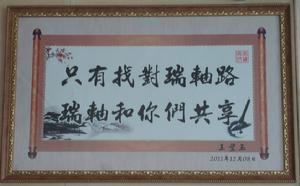 只有找對瑞軸路
瑞軸和你們共享
2011年12月08日